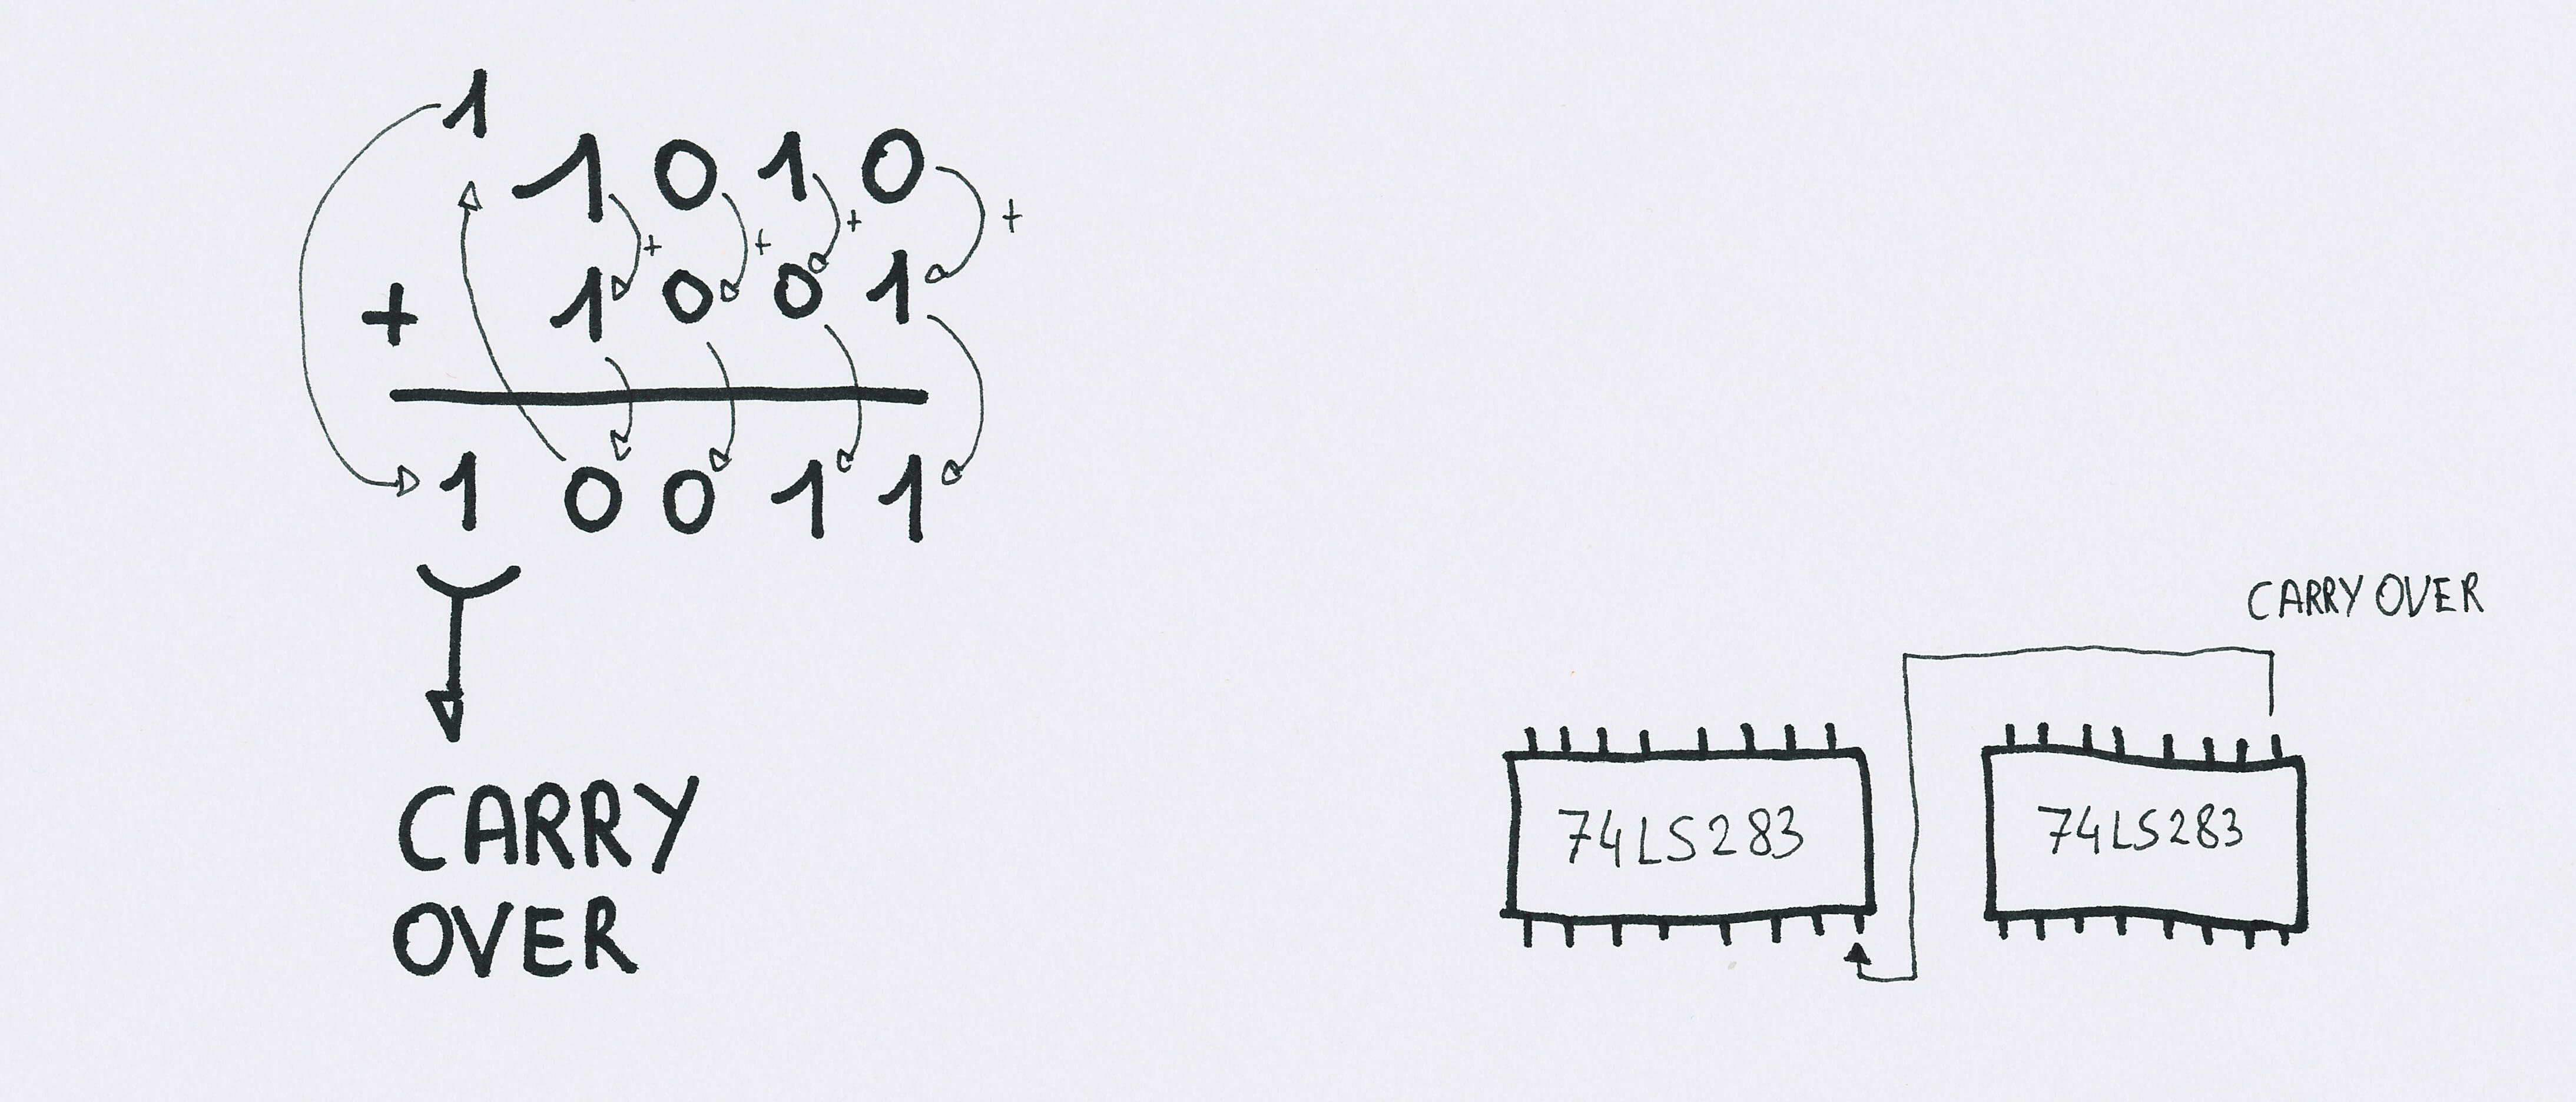 1
1 0 1 0
+ + + +
+ 1 0 0 1
1 0 0 1 1
CARRY
OVER
CARRY OVER
74LS283
74LS283